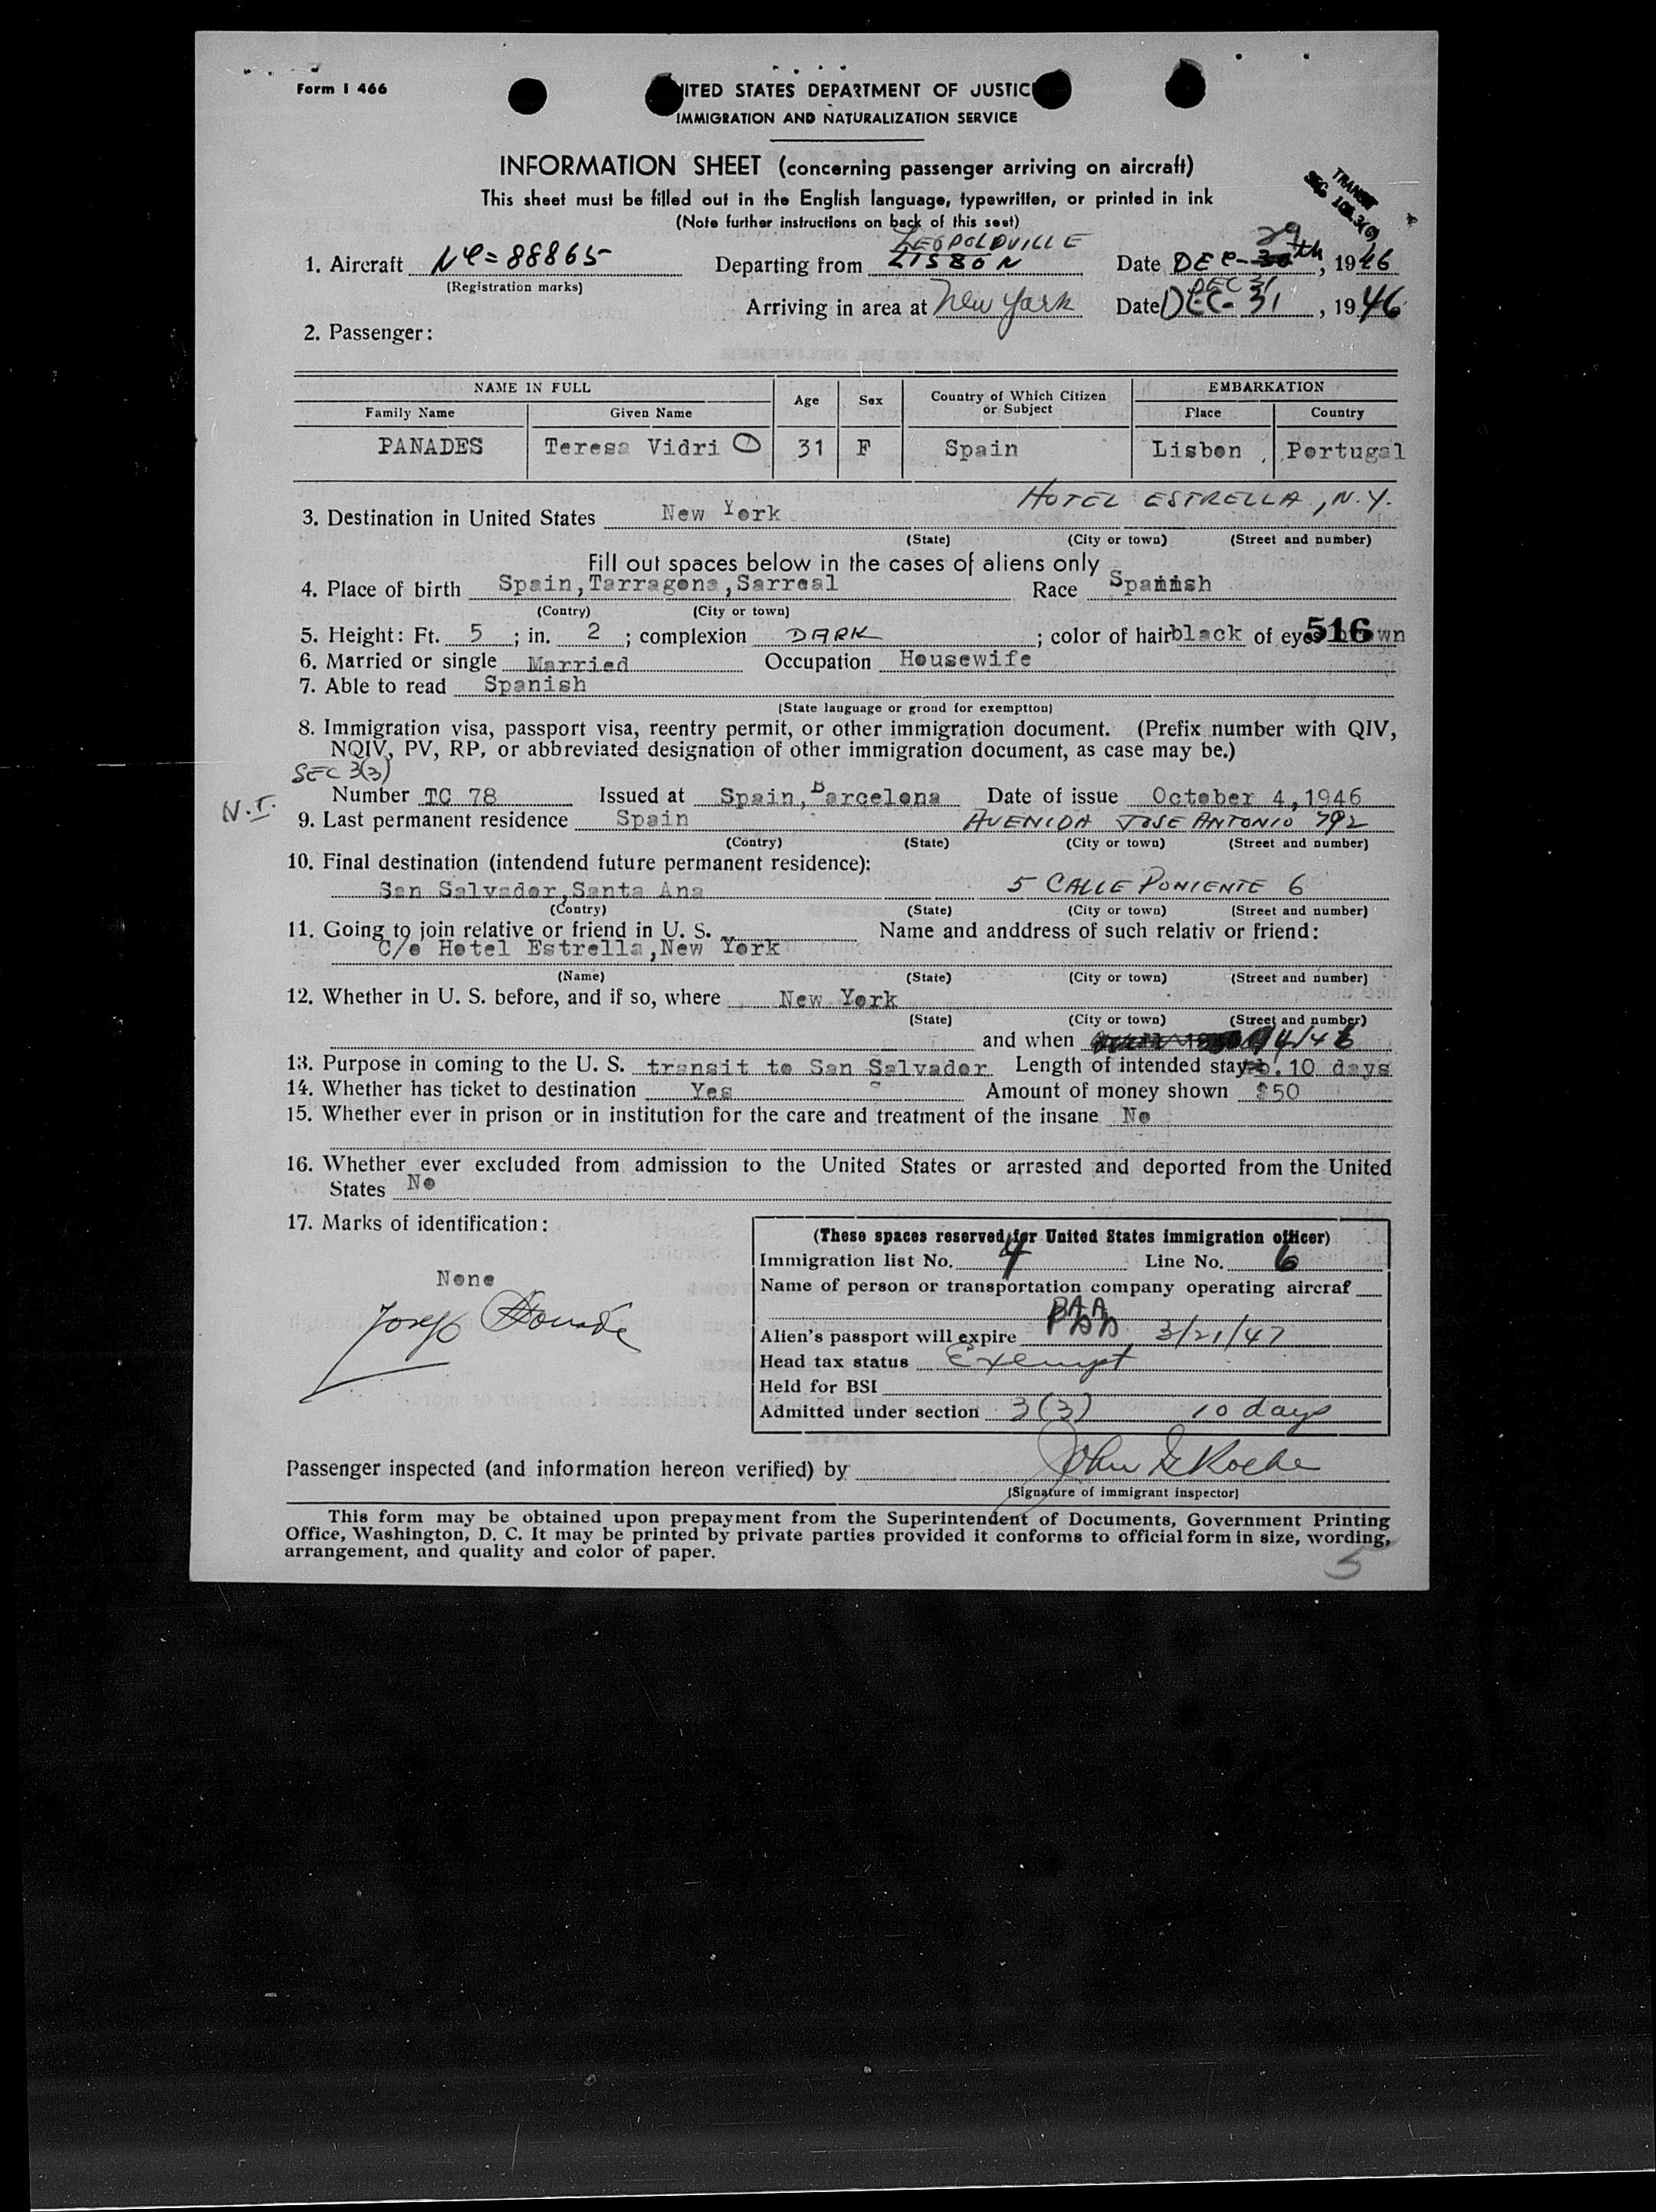 Form I 466
ITED STATES DEPARTMENT OF JUSTIC
IMMIGRATION AND NATURALIZATION SERVICE
INFORMATION SHEET (concerning passenger arriving on aircraft)
This sheet must be filled out in the English language, typewritten, or printed in ink
(Note further instructions on back of this seet)
TRANSIT
LEOPOLDVILLE 29
1. Aircraft Nc=88865 Departing from LISBON Date DEC- 30th, 1946
(Registration marks)
DEC 31
Arriving in area at New York Date DEC- 31, 1946
2. Passenger:
NAME IN FULL Age Sex Country of Which Citizen or Subject EMBARKATION
Family Name Given Name Place Country
PANADES Teresa Vidri 31 F Spain Lisbon, Portugal
HOTEL ESTRELLA, N.Y.
3. Destination in United States New York
(State) (City or town) (Street and number)
Fill out spaces below in the cases of aliens only
4. Place of birth Spain,Tarragona,Sarreal Race Spanish
(Contry) (City or town)
5. Height: Ft. 5 ; in. 2 ; complexion DARK ; color of hair black of eyes 516 wn
6. Married or single Married Occupation Housewife
7. Able to read Spanish
(State language or grond for exemption)
8. Immigration visa, passport visa, reentry permit, or other immigration document. (Prefix number with QIV,
NQIV, PV, RP, or abbreviated designation of other immigration document, as case may be.)
SEC 3(3)
Number TC 78 Issued at Spain,Barcelona Date of issue October 4,1946
N.I.
9. Last permanent residence Spain AVENIDA JOSE ANTONIO 792
(Contry) (State) (City or town) (Street and number)
10. Final destination (intendend future permanent residence):
San Salvador,Santa Ana 5 CALLE PONIENTE 6
(Contry) (State) (City or town) (Street and number)
11. Going to join relative or friend in U. S. Name and anddress of such relativ or friend:
C/o Hotel Estrella,New York
(Name) (State) (City or town) (Street and number)
12. Whether in U. S. before, and if so, where New York
(State) (City or town) (Street and number)
and when
13. Purpose in coming to the U. S. transit to San Salvador Length of intended stay 10 days
14. Whether has ticket to destination Yes Amount of money shown $50
15. Whether ever in prison or in institution for the care and treatment of the insane No
16. Whether ever excluded from admission to the United States or arrested and deported from the United
States No
17. Marks of identification:
None
(These spaces reserved for United States immigration officer)
Immigration list No. 4 Line No. 6
Name of person or transportation company operating aircraf
PAA
Alien's passport will expire 3/21/47
Head tax status Exempt
Held for BSI
Admitted under section 3(3) 10 days
Passenger inspected (and information hereon verified) by John Roche
(Signature of immigrant inspector)
This form may be obtained upon prepayment from the Superintendent of Documents, Government Printing
Office, Washington, D. C. It may be printed by private parties provided it conforms to official form in size, wording,
arrangement, and quality and color of paper.
5